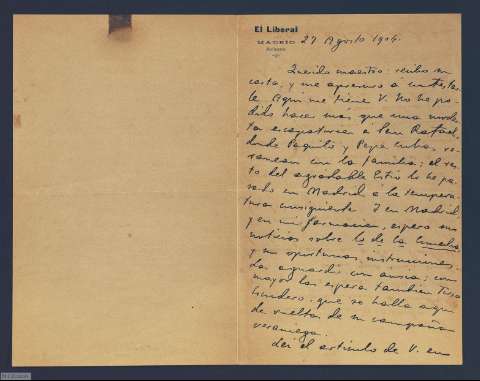 El Liberal
MADRID
27 Agosto 1904.
Querido maestro: recibo su
carta, y me apresuro á contestar-
le. Aquí me tiene V. No he po-
dido hacer mas que una modes-
ta escapatoria á San Rafael,
donde Paquito y Pepe Cuba, ve-
ranean con la familia; el res-
to del agradable Estío lo he pa-
sado en Madrid á la tempera-
tura consiguiente. Y en Madrid,
y en mi farmacia, espero sus
noticias sobre lo de la
y sus oportunas instrucciones.
Las aguardo con ansia; con
mayor las espera también Tirso
que se halla aquí
de vuelta de su campaña
veraniega.
Leí el artículo de V. en